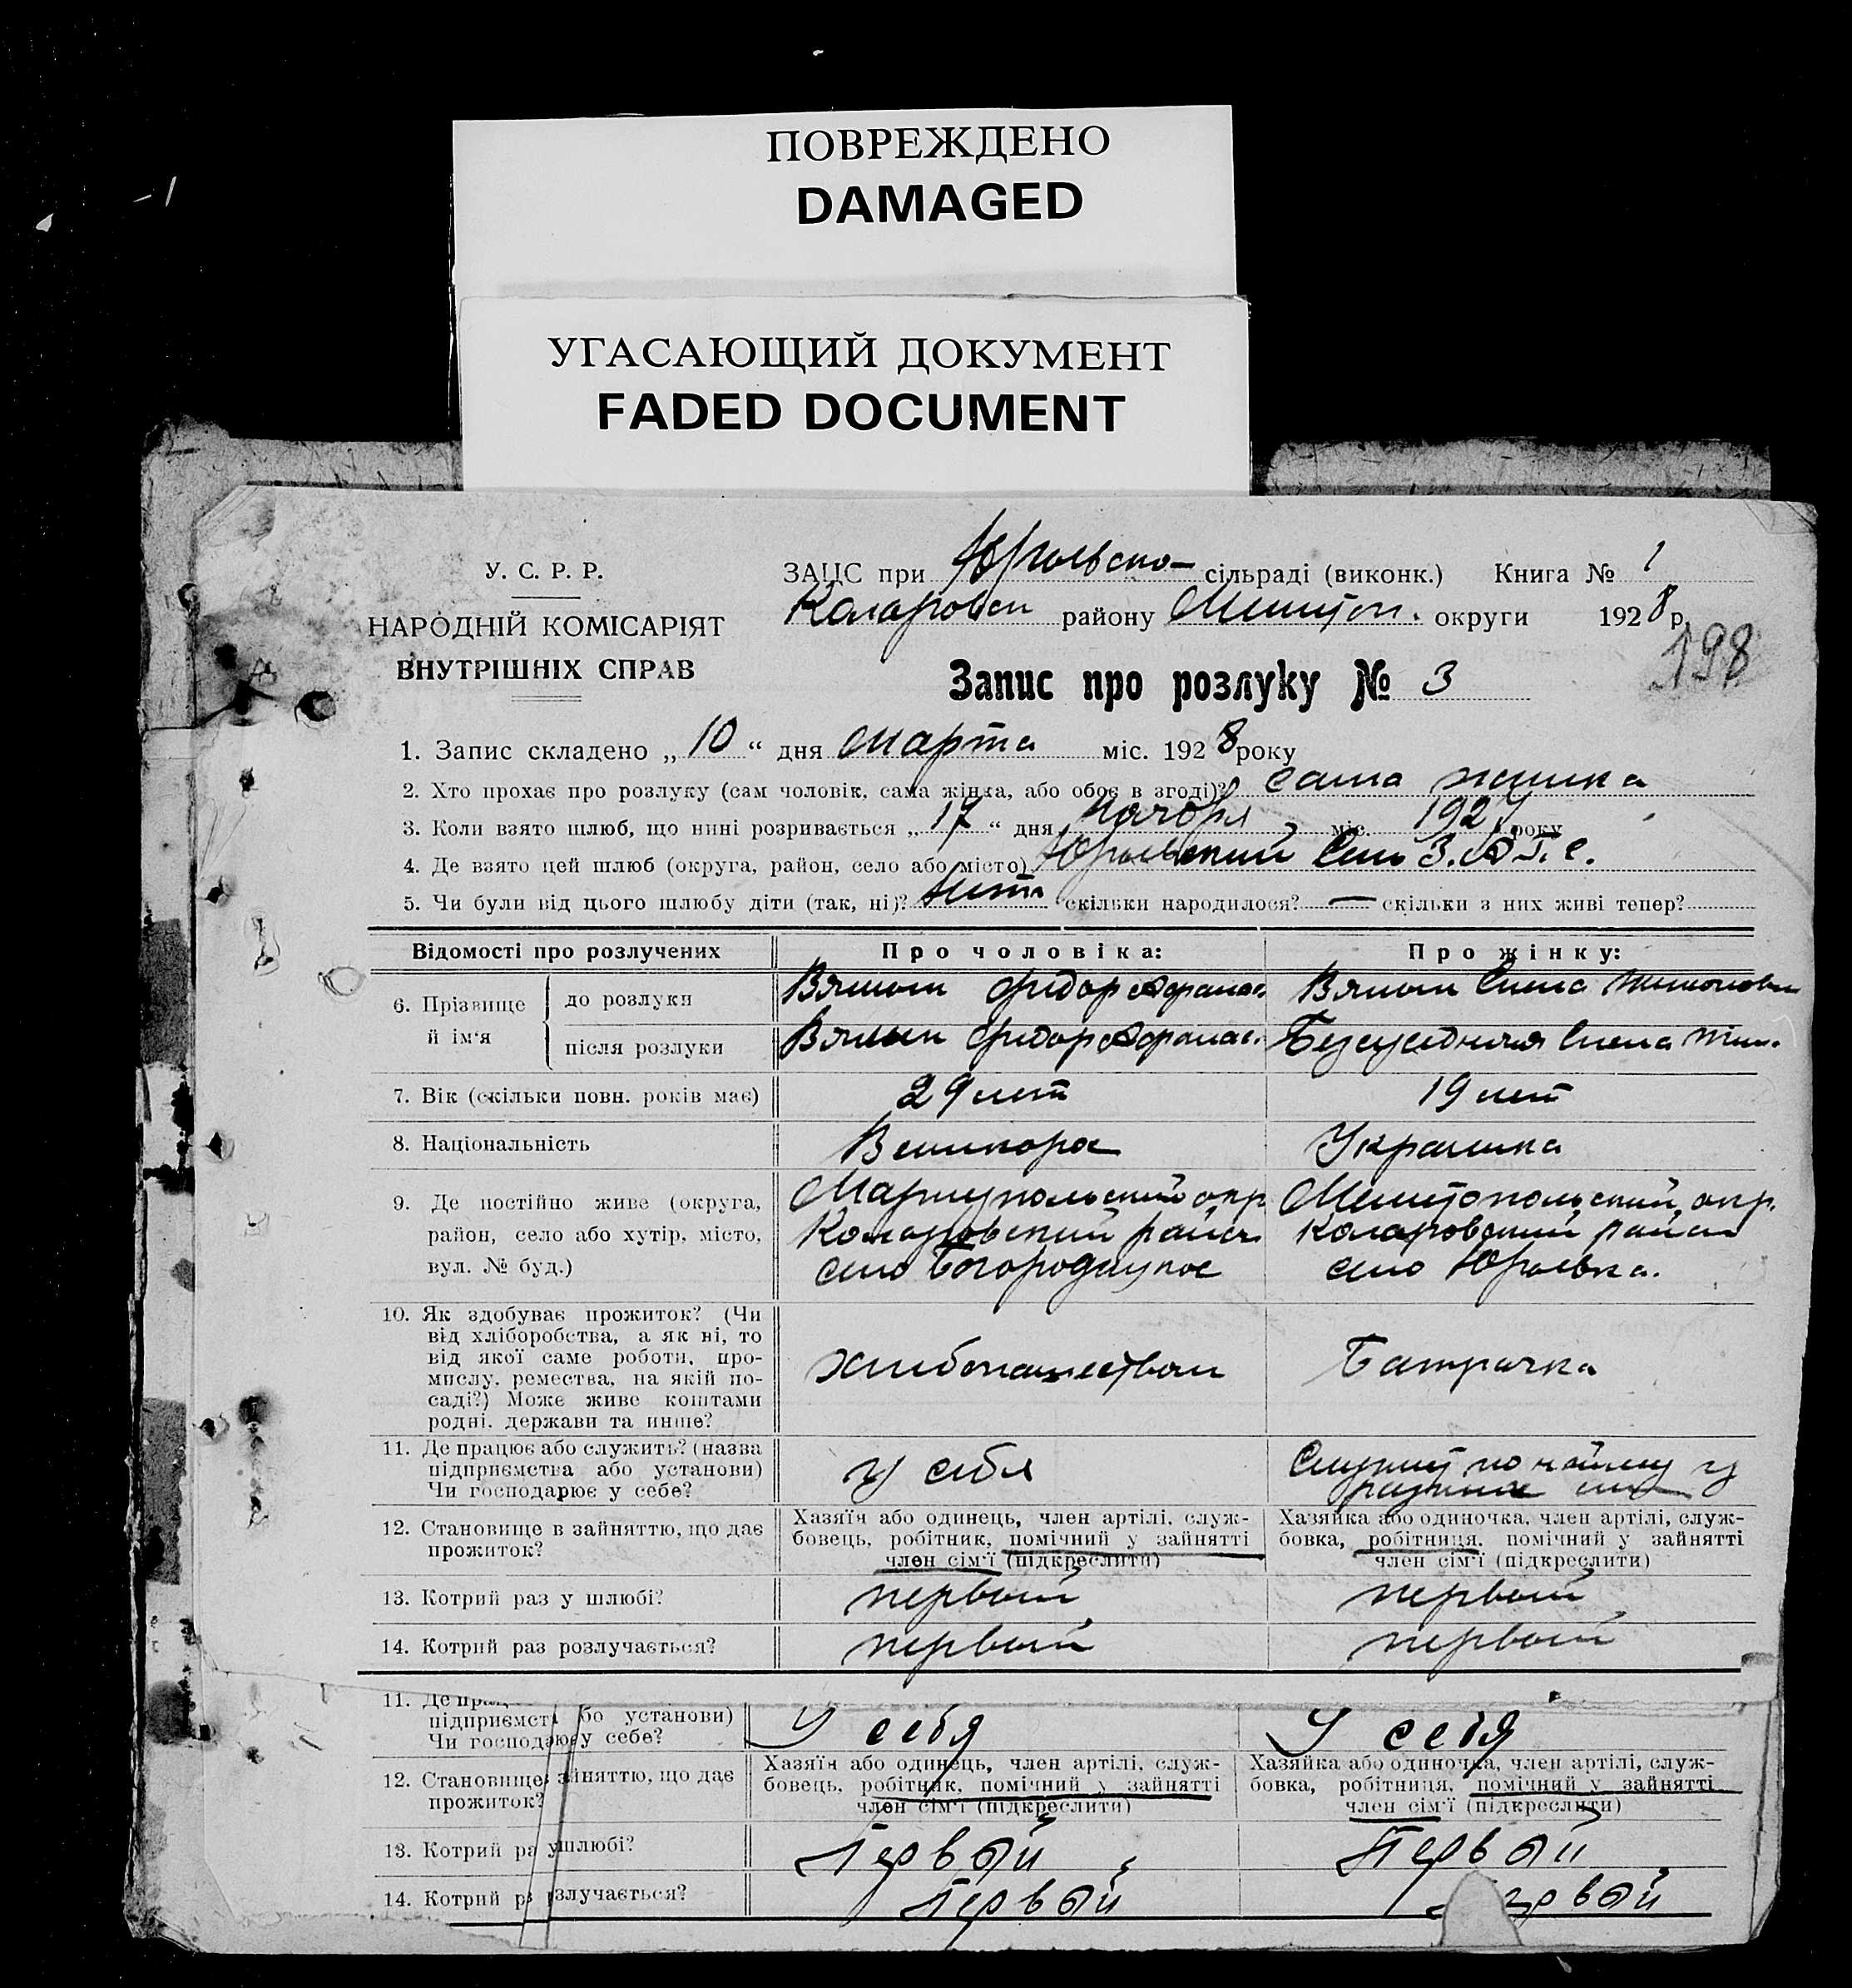 ПОВРЕЖДЕНО
DAMAGED
УГАСАЮЩИЙ ДОКУМЕНТ
FADED DOCUMENT
У. С. Р. Р.
НАРОДНІЙ КОМІСАРІЯТ
ВНУТРІШНІХ СПРАВ
ЗАЦС при Юрьевско- сільраді (виконк.) Книга № 1
Коларовск району Мелитоп. округи 1928 р.
198
Запис про розлуку № 3
1. Запис складено „ 10 “ дня марта міс. 1928 року
2. Хто прохає про розлуку (сам чоловік, сама жінка, або обоє в згоді)? сама
3. Коли взято шлюб, що нині розривається „ 17 “ дня Ноября міс. 1927 року
4. Де взято цей шлюб (округа, район, село або місто) Юрьевский З.А.Г.С.
5. Чи були від цього шлюбу діти (так, ні)? нет скільки народилося? — скільки з них живі тепер?
Відомості про розлучених Про чоловіка: Про жінку:
6. Прізвище й ім'я
до розлуки Федор Афанас. Елена
після розлуки Федор Афанас. Елена
7. Вік (скільки повн. років має) 29 лет 19 лет
8. Національність Великорос Украинка
9. Де постійно живе (округа,
район, село або хутір, місто,
вул. № буд.)
Мариупольский окр.
район
село Богородицкое
Мелитопольский окр.
Коларовский район
село Юрьевка.
10. Як здобуває прожиток? (Чи
від хліборобства, а як ні, то
від якої саме роботи, про-
мислу, ремества, на якій по-
саді?) Може живе коштами
родні, держави та инше?
Хлебопашеством
Батрачка
11. Де працює або служить? (назва
підприємства або установи)
Чи господарює у себе?
у себя
Служит по найму у
12. Становище в зайняттю, що дає
прожиток?
Хазяїн або одинець, член артілі, служ-
бовець, робітник, помічний у зайнятті
член сім'ї (підкреслити)
Хазяйка або одиночка, член артілі, служ-
бовка, робітниця, помічний у зайнятті
член сім'ї (підкреслити)
13. Котрий раз у шлюбі? первый первый
14. Котрий раз розлучається? первый первый
11. Де
підприємст бо установи)
Чи господарює у себе?
У себя У себя
12. Становище зайняттю, що дає
прожиток?
Хазяїн або одинець, член артілі, служ-
бовець, робітник, помічний у зайнятті
член сім'ї (підкреслити)
Хазяйка або одиночка, член артілі, служ-
бовка, робітниця, помічний у зайнятті
член сім'ї (підкреслити)
13. Котрий ра у шлюбі? Первый Первый
14. Котрий р злучається? Первый рвый